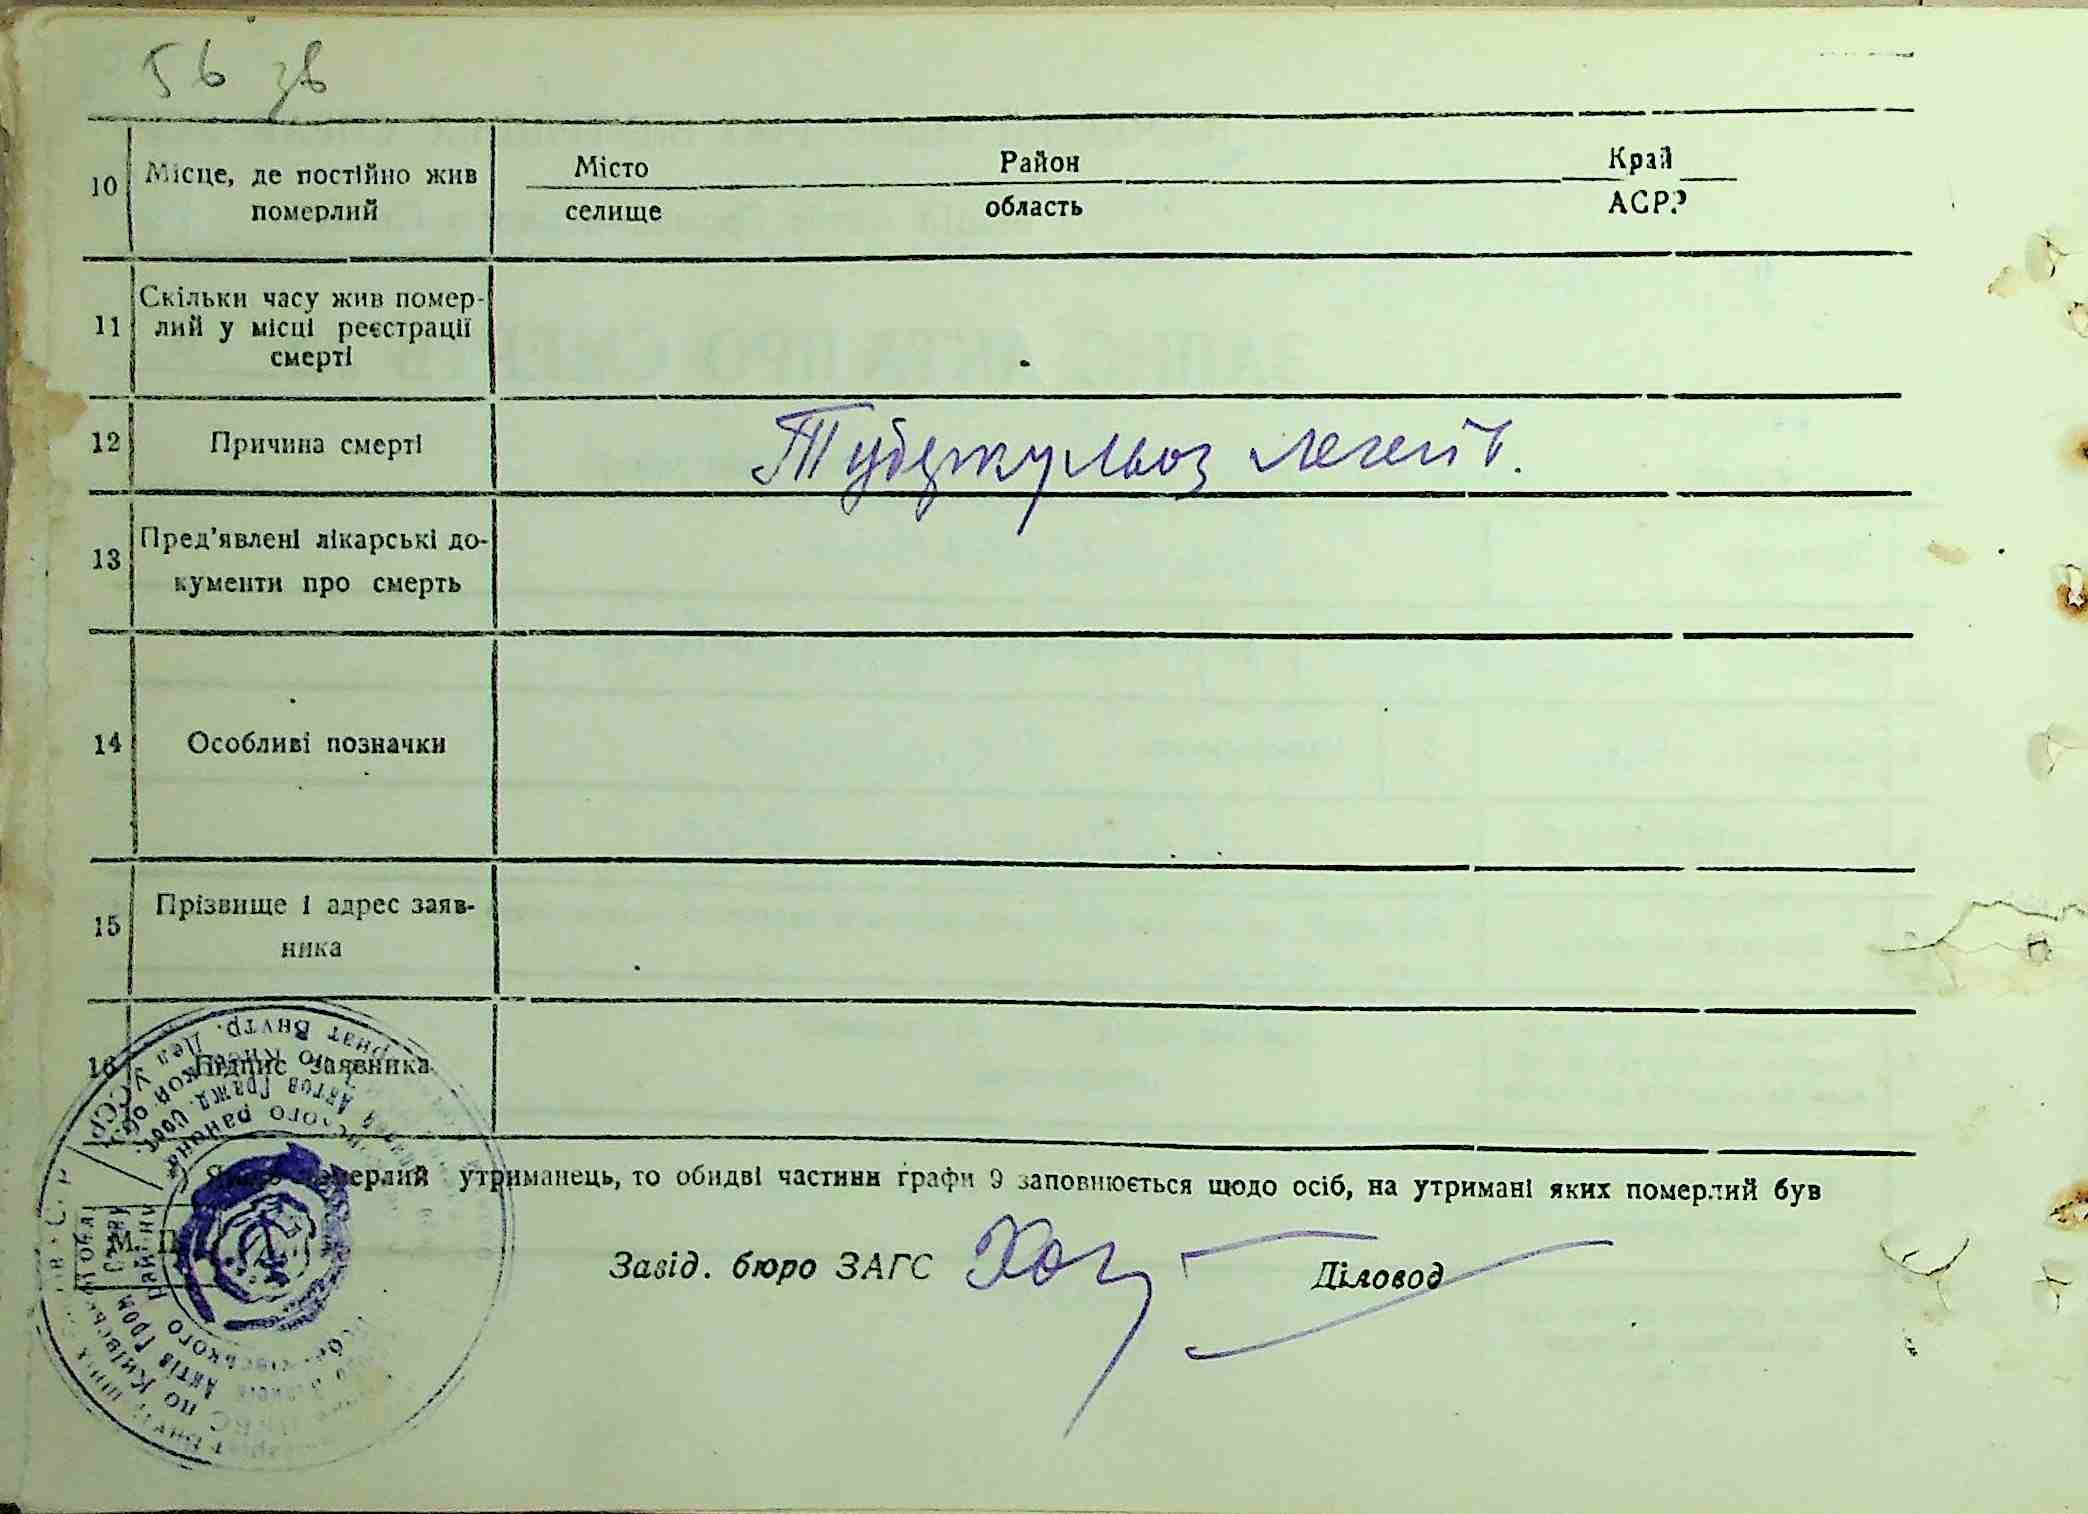 56 зв
10 Місце, де постійно жив померлий
Місто Район Край
селище область АСРР
11 Скільки часу жив помер-
лий у місці реєстрації
смерті
12 Причина смерті Туберкульоз легенів.
13 Пред'явлені лікарські до-
кументи про смерть
14 Особливі позначки
15 Прізвище і адрес заяв-
ника
16 Підпис заявника
Якщо померлий утриманець, то обидві частини графи 9 заповнюється щодо осіб, на утримані яких померлий був
М. П.
Завід. бюро ЗАГС Діловод